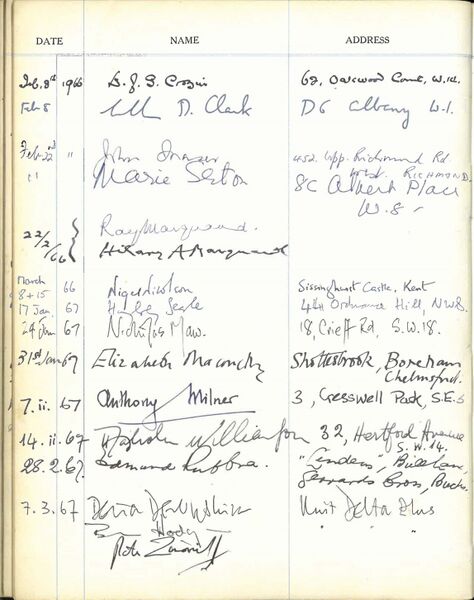 DATE NAME ADDRESS
Feb. 8th 1966 68, Oakwood Court, W.14.
Feb 8 D. Clark D6 Albany W.1.
Feb. 22nd " John 452 Upp. Richmond Rd.
RICHMOND
" Marie Seton 8C Albert Place
W.8
22/2/66 } Ray Marquand.
Hilary A Marquand
March
8 + 15 66 Nigel Nicolson Sissinghurst Castle, Kent
17 Jan. 67 Humphrey Searle 44 Ordnance Hill, NW8.
24 Jan 67 Nicholas Maw. 18, Crieff Rd, S.W.18.
31st Jan 67 Elizabeth Maconchy Shottesbrook, Boreham
Chelmsford.
7. ii. 67 Anthony Milner 3, Cresswell Park, S.E.3
14. ii. 67 Malcolm Williamson 32, Hertford Avenue
S.W.14.
28.2.67. Edmund Rubbra. "Lindens", Bull Lane,
Gerrards Cross, Bucks.
7.3.67 Delia Derbyshire Unit Delta Plus
B Hodgson " "
Peter Zinovieff